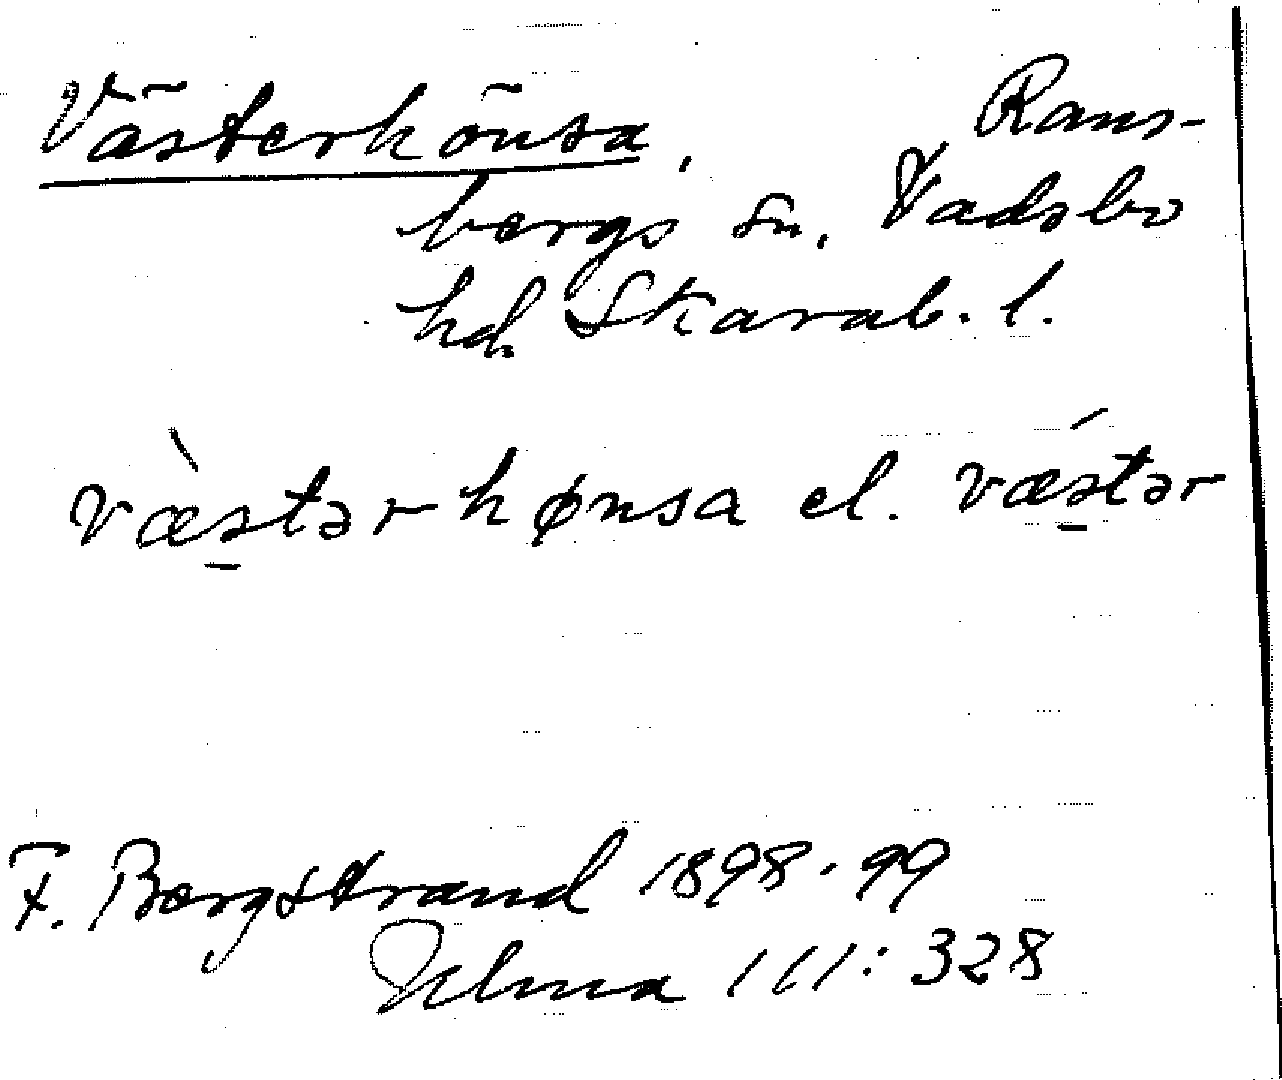 Västerhönsa, Rans-
bergs sn. Vadsbo
hd. Skarab. l.
væ̀stər hønsa el. vǽstər
F. Bergstrand 1898-99
Ulma 111:328